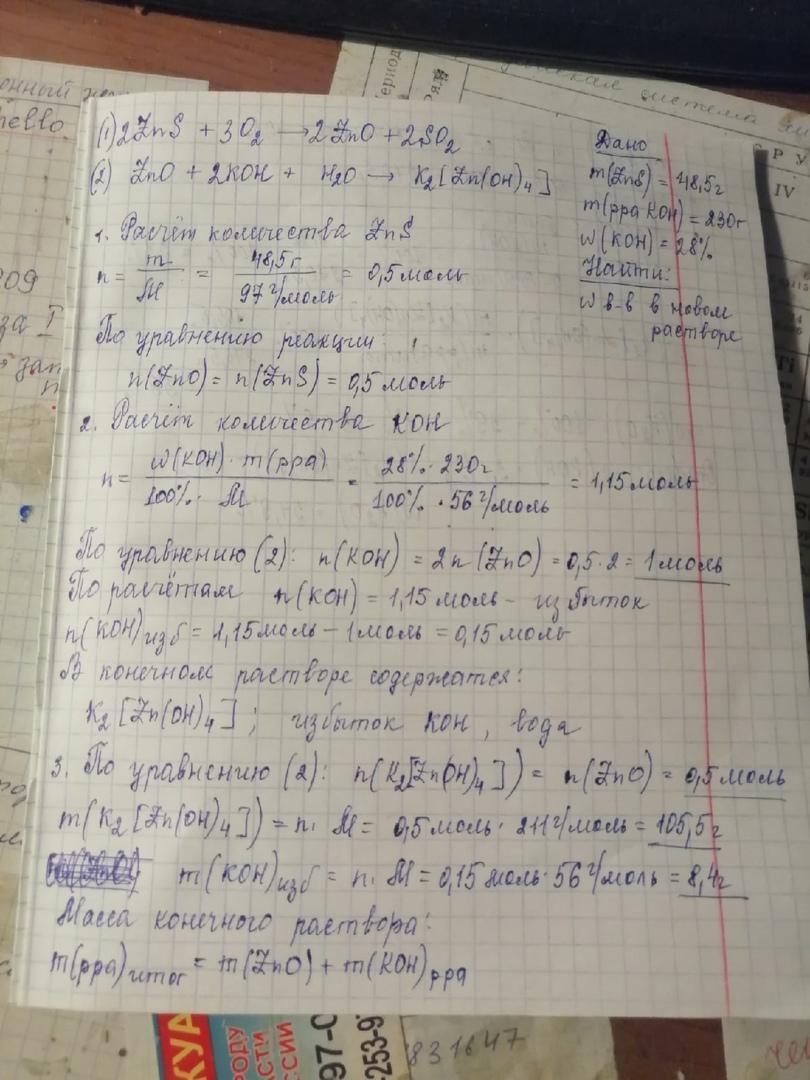 (1) 2ZnS + 3O₂ → 2ZnO + 2SO₂
(2) ZnO + 2KOH + H₂O → K₂[Zn(OH)₄]
Дано
m(ZnS) = 48,5г
m(рра KOH) = 230г
w(KOH) = 28%
Найти:
w в-в в новом
растворе
1. Расчёт количества ZnS
n = m/M = 48,5г/97 г/моль = 0,5 моль
По уравнению реакции:
n(ZnO) = n(ZnS) = 0,5 моль
2. Расчёт количества KOH
n = w(KOH) · m(рра)/100% · M = 28% · 230г/100% · 56 г/моль = 1,15 моль
По уравнению (2): n(KOH) = 2n(ZnO) = 0,5 · 2 = 1 моль
По расчётам n(KOH) = 1,15 моль - избыток
n(KOH)изб = 1,15 моль - 1 моль = 0,15 моль
В конечном растворе содержатся:
K₂[Zn(OH)₄]; избыток KOH, вода
3. По уравнению (2): n(K₂[Zn(OH)₄]) = n(ZnO) = 0,5 моль
m(K₂[Zn(OH)₄]) = n · M = 0,5 моль · 211 г/моль = 105,5г
m(KOH)изб = n · M = 0,15 моль · 56 г/моль = 8,4г
Масса конечного раствора:
m(рра)итог = m(ZnO) + m(KOH)рра
IV
831647